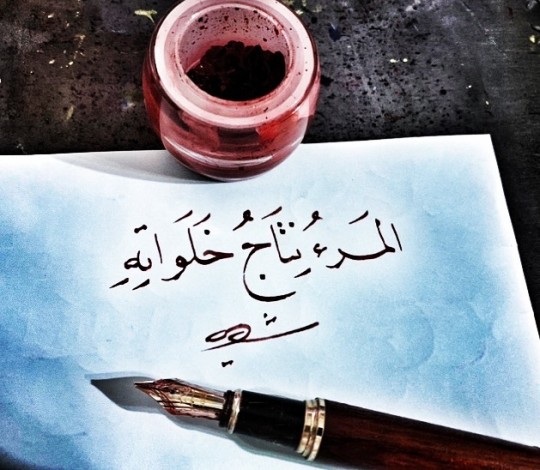 المَرءُ نِتَاجُ خَلَوَاتِهِ